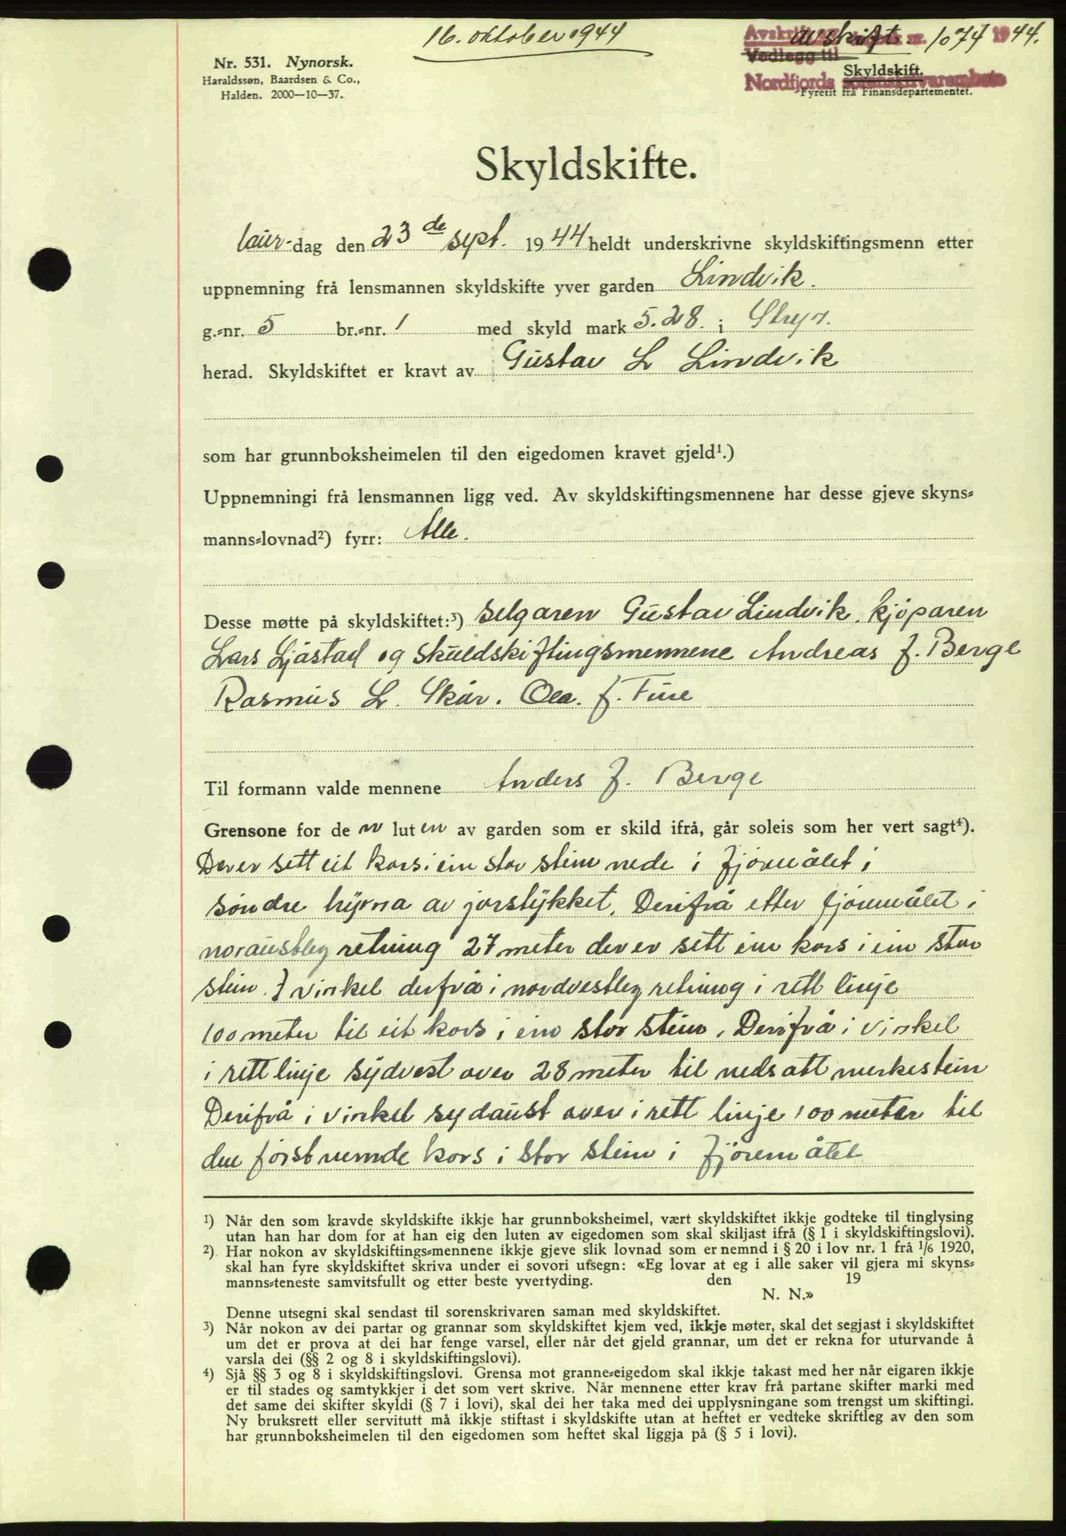 16. oktober 1944
Avskrift avskift nr. 1074 1944.
Vedlegg til
Nordfjords sorenskrivarembete
Nr. 531. Nynorsk.
Haraldssøn, Baardsen & Co.,
Halden. 2000—10—37.
Skyldskift.
Fyretit frå Finansdepartementet.
Skyldskifte.
laur-dag den 23 de sept. 1944 heldt underskrivne skyldskiftingsmenn etter
uppnemning frå lensmannen skyldskifte yver garden Lindvik.
g.-nr. 5 br.-nr. 1 med skyld mark 5.28. i Stryn.
herad. Skyldskiftet er kravt av Gustav L Lindvik
som har grunnboksheimelen til den eigedomen kravet gjeld¹.)
Uppnemningi frå lensmannen ligg ved. Av skyldskiftingsmennene har desse gjeve skyns-
manns-lovnad²) fyrr: Alle.
Desse møtte på skyldskiftet:³) selgaren Gustav Lindvik. kjøparen
Lars Ljåstad og skuldskiftingsmennene Andreas J. Berge
Rasmus L. Skår. Ola. J. Fure
Til formann valde mennene Anders J. Berge
Grensone for de n luten av garden som er skild ifrå, går soleis som her vert sagt⁴).
Der er sett eit kors i ein stor stein nede i fjøremålet i
søndre hyrna av jorstykket. Derifrå etter fjøremålet i
noraustleg retning 27 meter der er sett ein kors i ein stor
stein. I vinkel derfrå i nordvestleg retning i rett linje
100 meter til eit kors i ein stor stein. Derifrå i vinkel
i rett linje sydvest over 28 meter til nedsatt merkestein
Derifrå i vinkel sydaust over i rett linje 100 meter til
due førstnemnde kors i stor stein i fjøremålet
¹) Når den som kravde skyldskifte ikkje har grunnboksheimel, vært skyldskiftet ikkje godteke til tinglysing
utan han har dom for at han eig den luten av eigedomen som skal skiljast ifrå (§ 1 i skyldskiftingslovi).
²) Har nokon av skyldskiftings-mennene ikkje gjeve slik lovnad som er nemnd i § 20 i lov nr. 1 frå 1/6 1920,
skal han fyre skyldskiftet skriva under ei sovori utsegn: «Eg lovar at eg i alle saker vil gjera mi skyns-
manns-teneste samvitsfullt og etter beste yvertyding. den 19
N. N.»
Denne utsegni skal sendast til sorenskrivaren saman med skyldskiftet.
³) Når nokon av dei partar og grannar som skyldskiftet kjem ved, ikkje møter, skal det segjast i skyldskiftet
um det er prova at dei har fenge varsel, eller når det gjeld grannar, um det er rekna for uturvande å
varsla dei (§§ 2 og 8 i skyldskiftingslovi).
⁴) Sjå §§ 3 og 8 i skyldskiftingslovi. Grensa mot granne-eigedom skal ikkje takast med her når eigaren ikkje
er til stades og samtykkjer i det som vert skrive. Når mennene etter krav frå partane skifter marki med
det same dei skifter skyldi (§ 7 i lovi), skal dei her taka med dei upplysningane som trengst um skiftingi.
Ny bruksrett eller servitutt må ikkje stiftast i skyldskifte utan at heftet er vedteke skriftleg av den som
har grunnboksheimelen til den eigedomen som heftet skal liggja på (§ 5 i lovi).